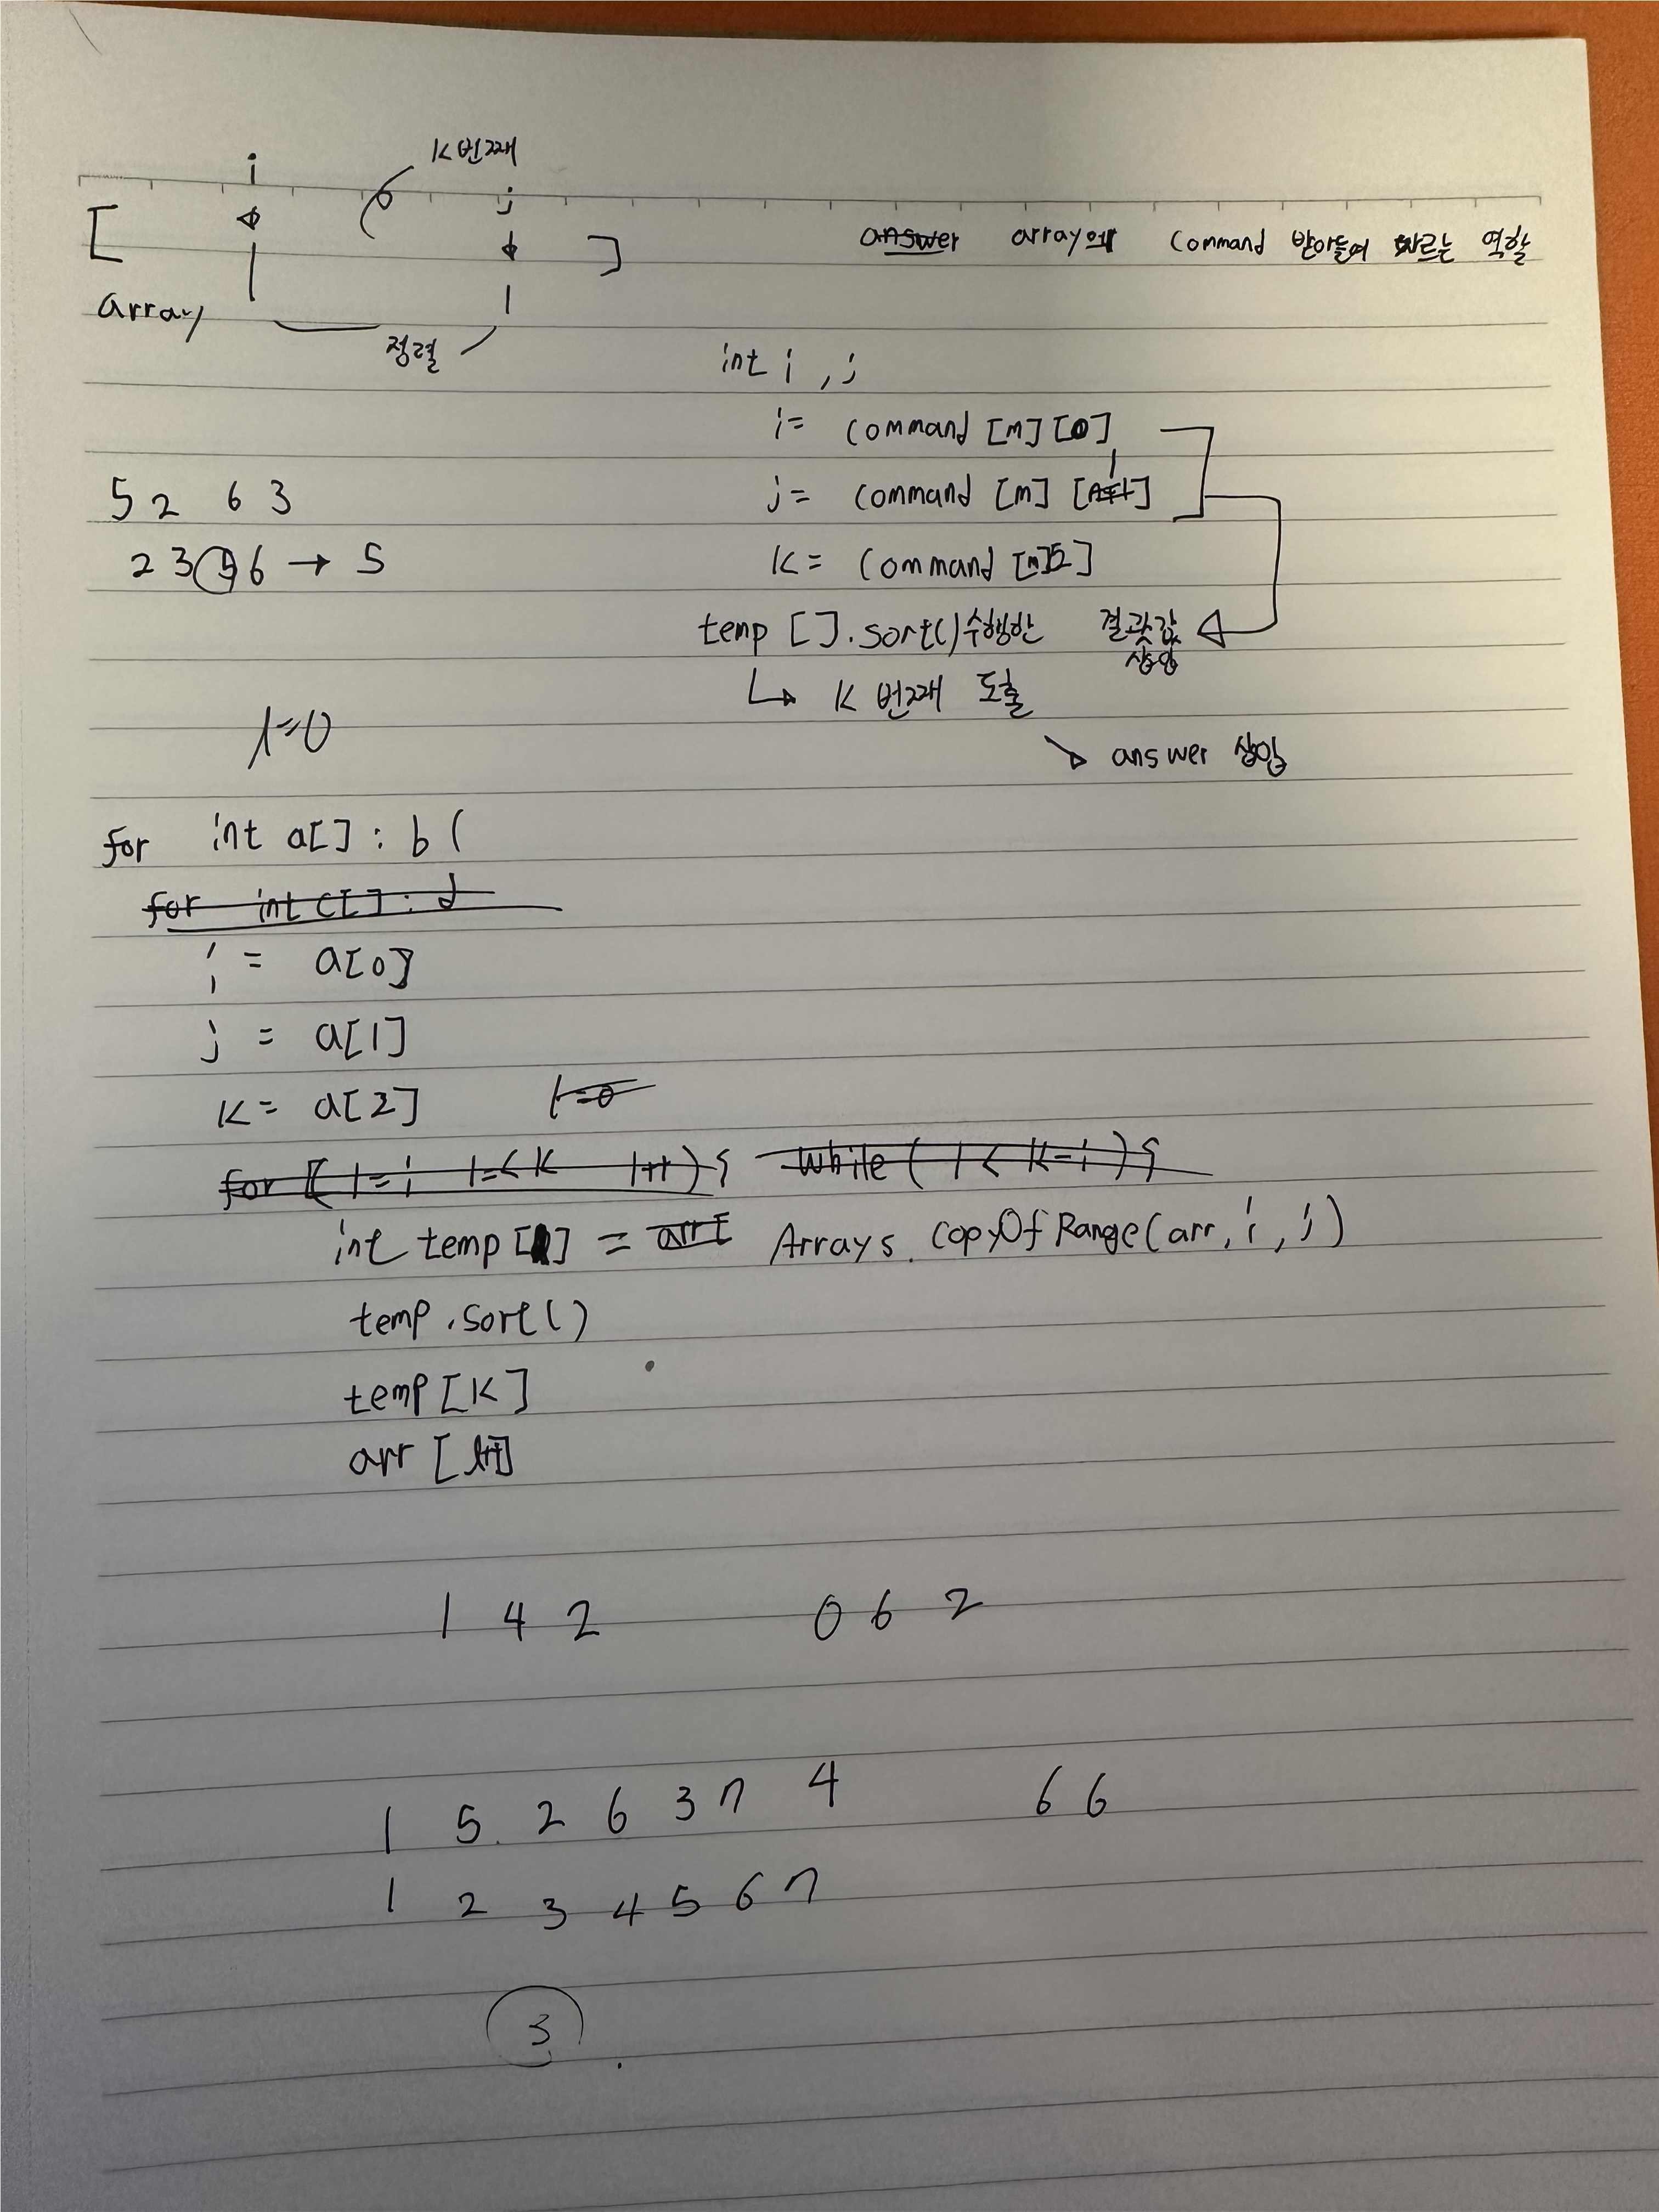 i K번째 j
[ ]
array
정렬
answer array에 command 받아들여 자르는 역할
int i , j
i = command [m] [0]
j = command [m] [1]
K = command [m][2]
temp [].sort() 수행한 결괏값 삽입
K 번째 도출
answer 삽입
5 2 6 3
2 3 5 6 → 5
l=0
for int a[] : b (
for int c[] : d
i = a[0]
j = a[1]
K = a[2] l=0
for [ l=i l=<K l++){ while ( l < K-i ){
int temp [] = arr[ Arrays. CopyOfRange(arr, i, j)
temp .sort()
temp [K]
arr [ ]
1 4 2 0 6 2
1 5. 2 6 3 7 4 6 6
1 2 3 4 5 6 7
3